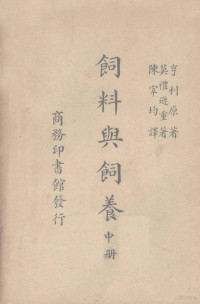 亨利原著
莫禮遜重著
陳宰均譯
飼料與飼養
中册
商務印書館發行